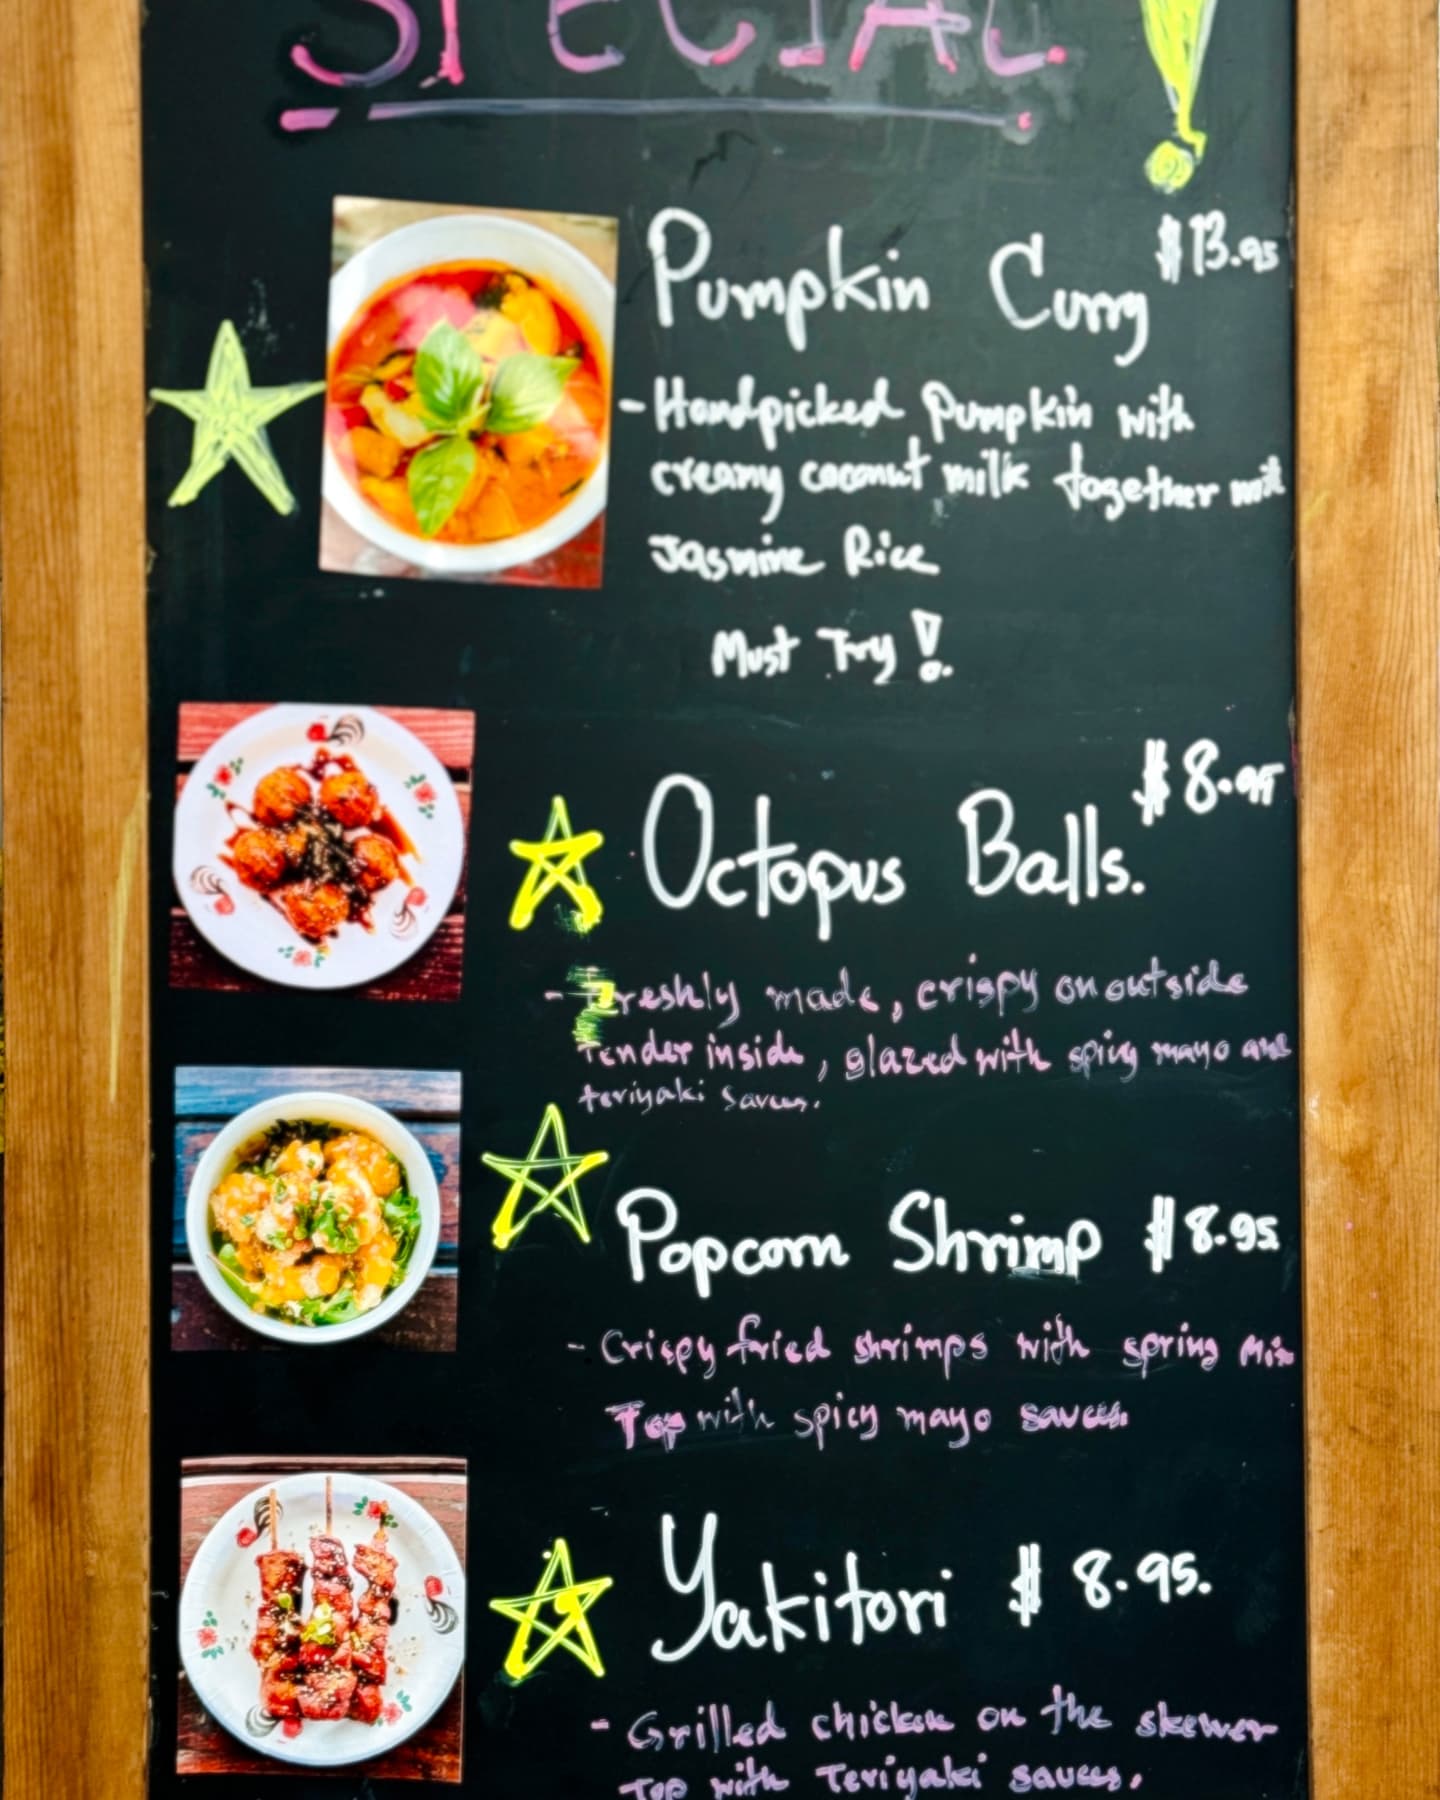 SPECIAL!
Pumpkin Curry $13.95
- Handpicked Pumpkin with
creamy coconut milk together with
Jasmine Rice
Must Try!
Octopus Balls. $8.95
- Freshly made, crispy on outside
Tender inside, glazed with spicy mayo and
teriyaki sauces.
Popcorn Shrimp $8.95
- Crispy fried shrimps with spring Mix
Top with spicy mayo sauces.
Yakitori $8.95.
- Grilled chicken on the skewer
Top with Teriyaki sauces.